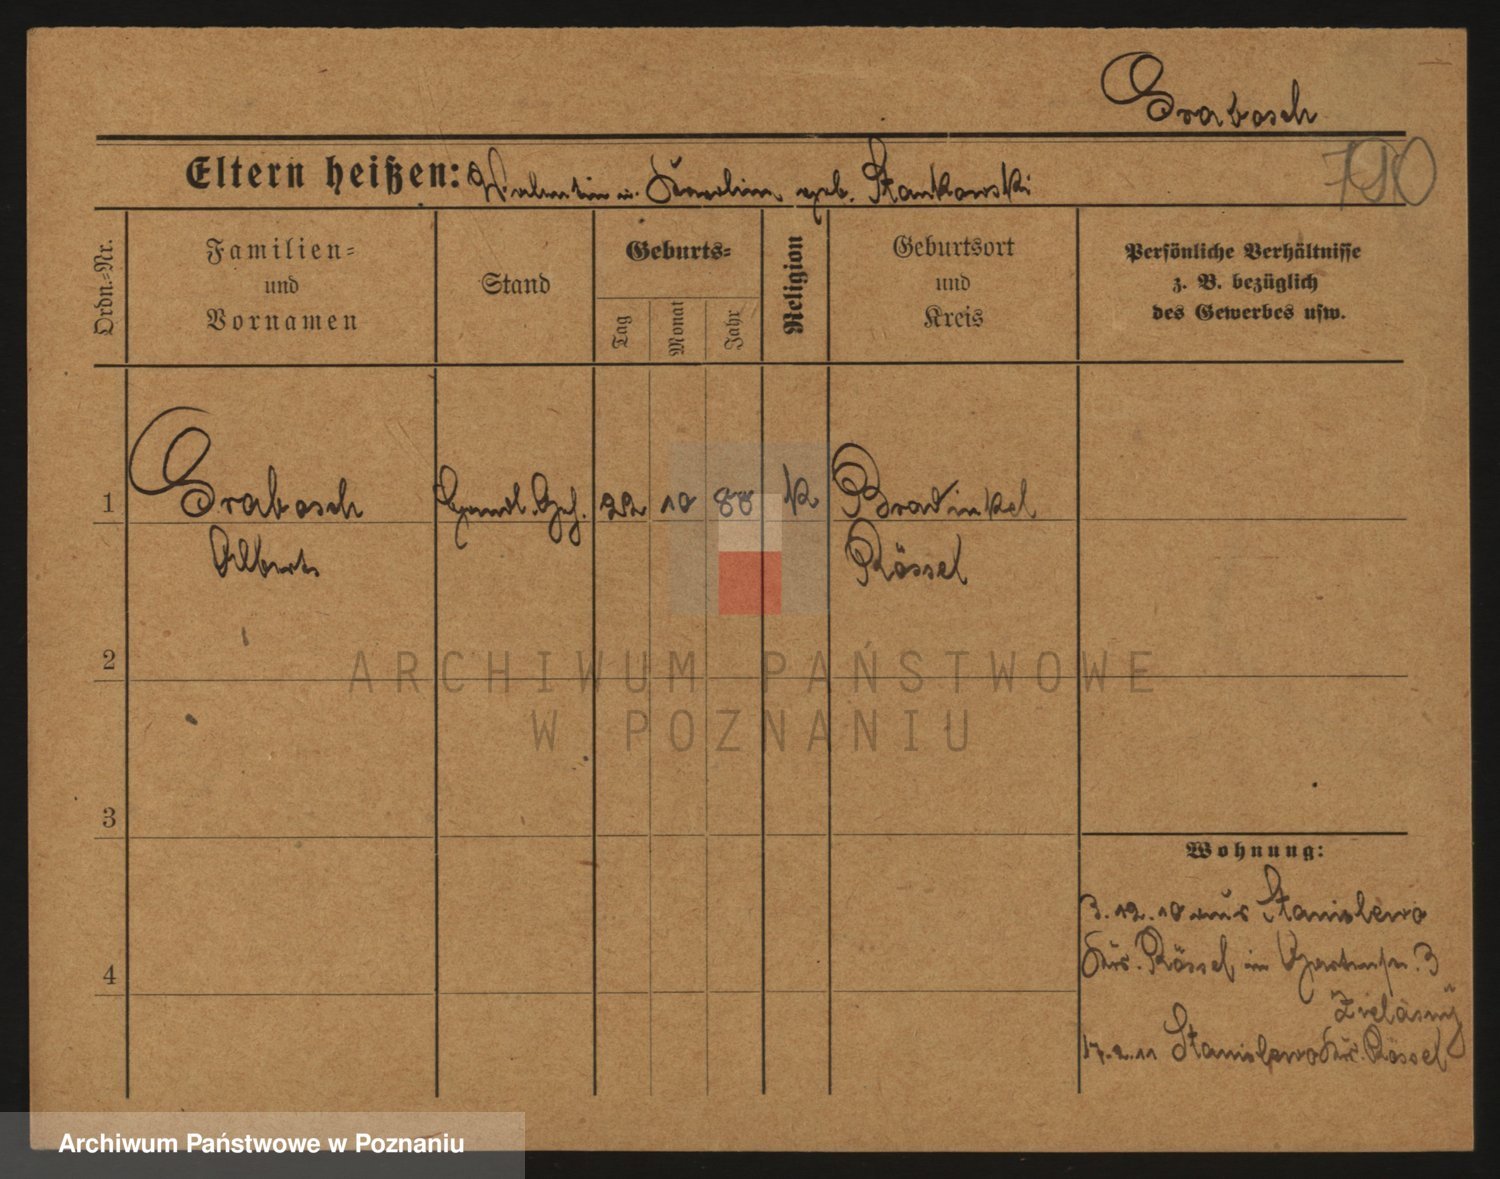 Grabosch
790
Eltern heißen: Valentin u. Karolina geb. Stankowski
Ordn.-Nr.
Familien- und Vornamen
Stand
Geburts-
Tag
Monat
Jahr
Religion
Geburtsort und Kreis
Persönliche Verhältnisse
z. B. bezüglich
des Gewerbes usw.
1 Grabosch Handl. Geh. 22 10 88 K Bradinkel
Albert Rössel
2
ARCHIWUM PAŃSTWOWE
W POZNANIU
3
Wohnung:
3.12.10 aus Stanislewo
Krs. Rössel in Gartenstr. 3
4
17.2.11 Stanislewo Krs. Rössel
Archiwum Państwowe w Poznaniu